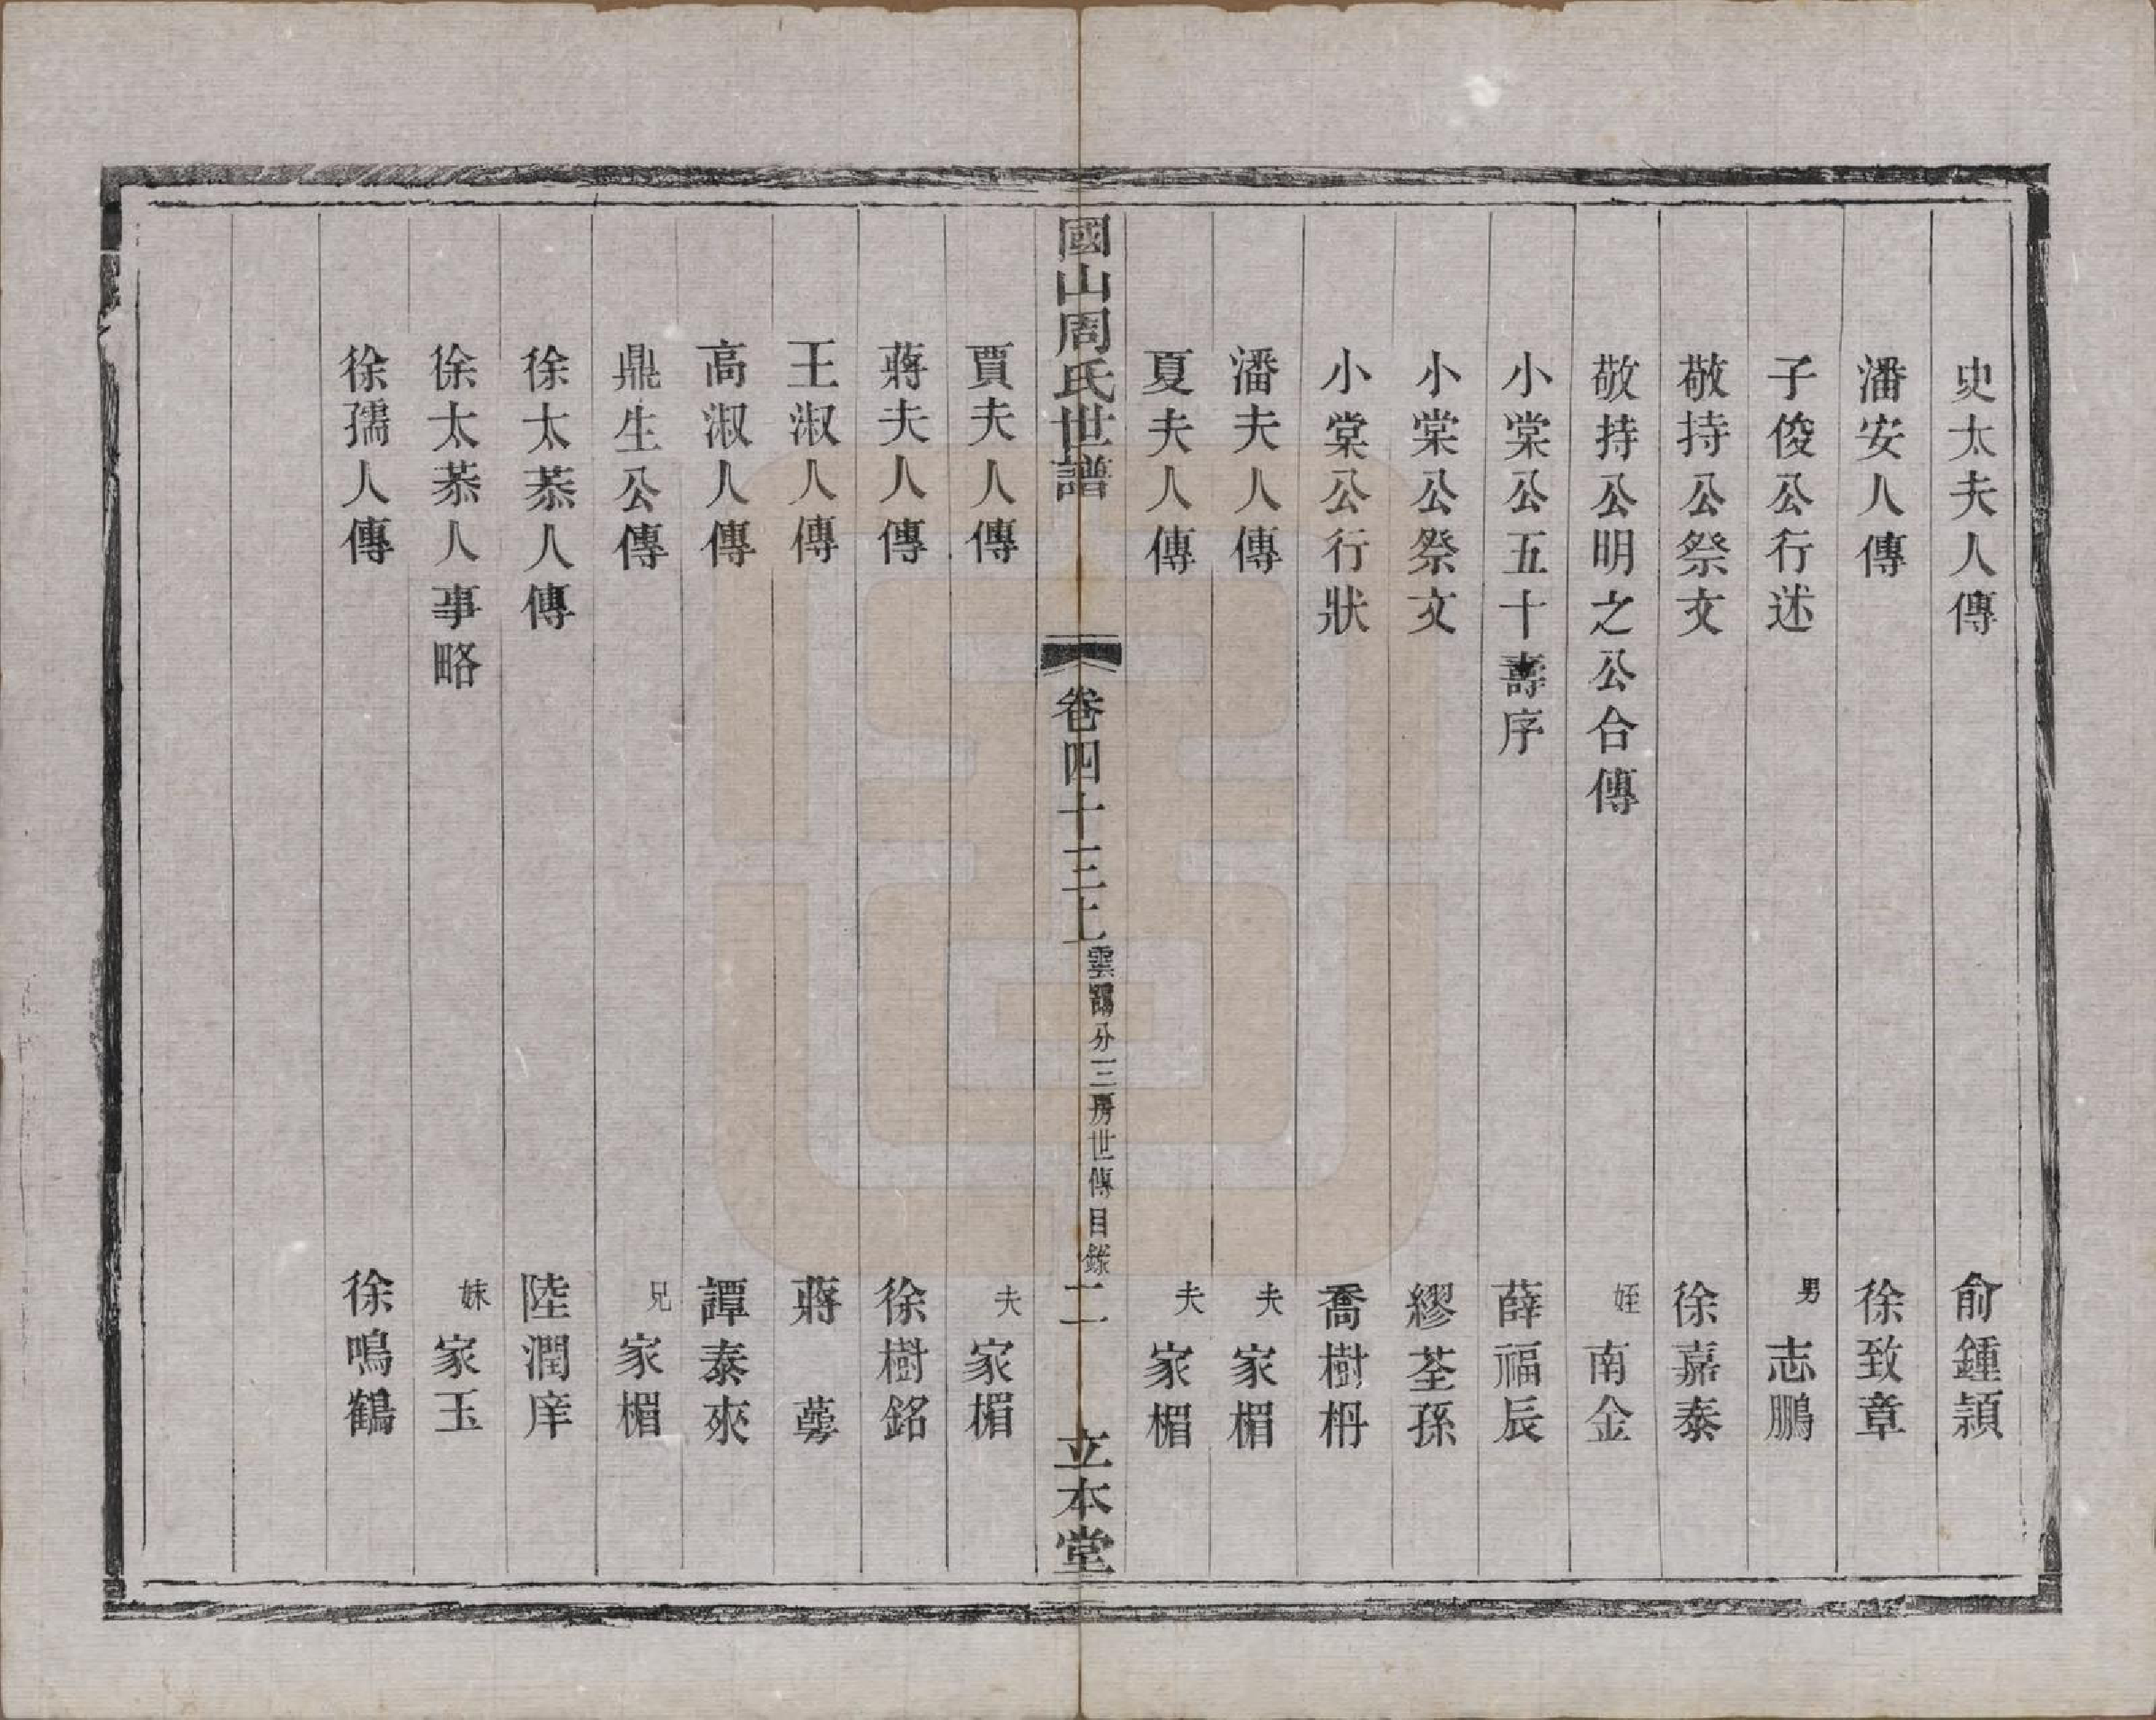 史太夫人傳　俞鍾頴
潘安人傳　徐致章
子俊公行述　男志鵬
敬持公祭文　徐嘉泰
敬持公明之公合傳　姪南金
小棠公五十壽序　薛福辰
小棠公祭文　繆荃孫
小棠公行狀　喬樹枏
潘夫人傳　夫家楣
夏夫人傳　夫家楣
國山周氏世譜　卷四十三上　雲陽分三房世傳目錄　二　立本堂
賈夫人傳　夫家楣
蔣夫人傳　徐樹銘
王淑人傳　蔣萼
高淑人傳　譚泰來
鼎生公傳　兄家楣
徐太恭人傳　陸潤庠
徐太恭人事略　妹家玉
徐孺人傳　徐鳴鶴